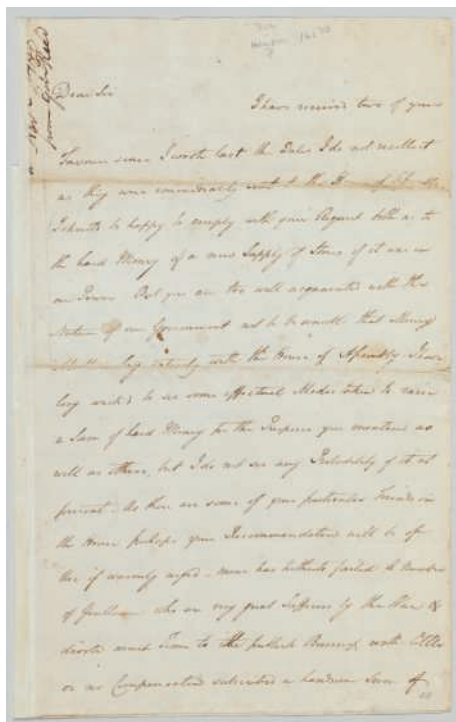 Dear Sir
I have received two of your
Favours since I wrote last the Dates I do not recollect
as they were immediately sent to the
I should be happy to comply with your Request both as to
the hard Money & a new Supply of Stores if it was in
our Power But you are too well acquainted with the
Nature of our Government not to be sensible that Money
Matters lay entirely with the House of Assembly I have
long wished to see some effectual Modes taken to raise
a Sum of hard Money for the Purpose you mention as
well as others, but I do not see any Probability of it at
present. As there are some of your particular Friends in
the House perhaps your Recommendation will be of
Use if warmly urged - mine has hitherto failed A Number
of Gentlemen who are very great Sufferers by the War &
devote much Time to the publick Business with little
or no Compensation subscribed a handsome Sum of